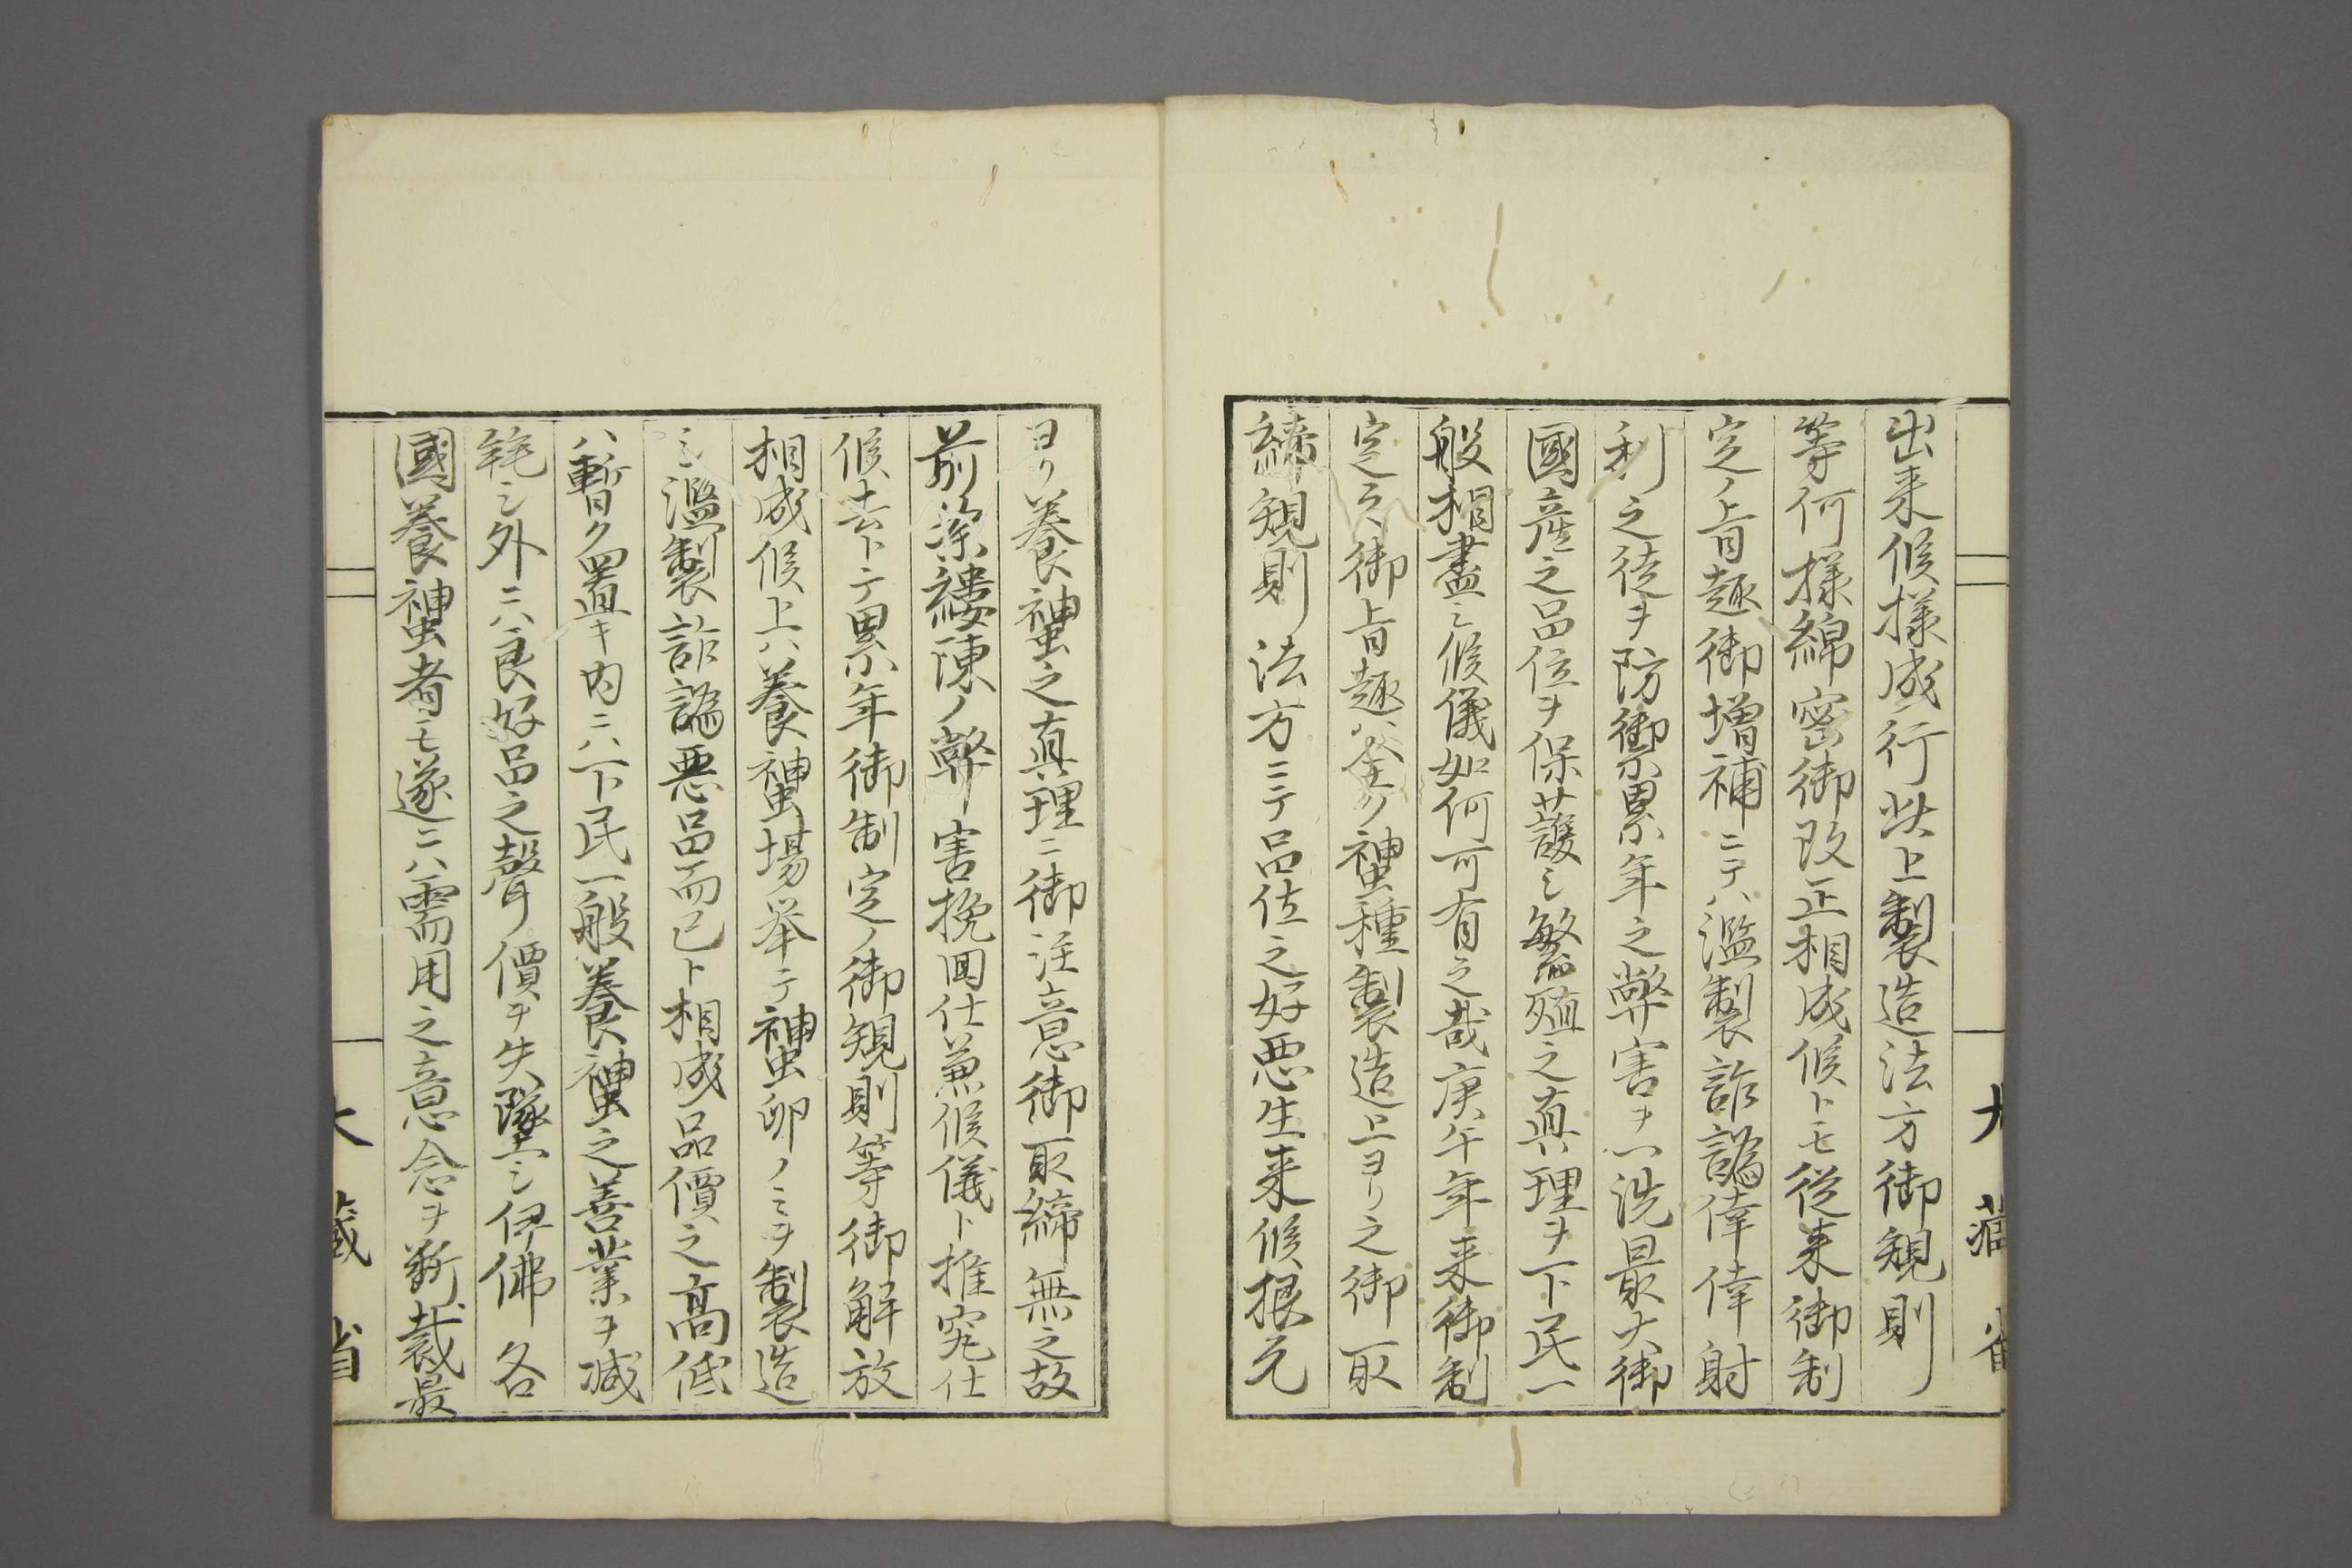 出来候様成行此上製造法方御規則
等何様綿密御改正相成候トモ従来御制
定ノ旨趣御増補ニテハ濫製詐譌倖倖射
利之徒ヲ防禦累年之弊害ヲ一洗最大御
國産之品位ヲ保護シ繁殖之真理ヲ下民一
般相盡シ候儀如何可有之哉庚午年来御制
定之御旨趣ハ全ク蚕種製造上ヨリ之御取
締規則法方ニテ品位之好悪生来候根元
ヨリ養蚕之真理ニ御注意御取締無之故
前条縷陳ノ弊害挽回仕兼候儀ト推究仕
候去トテ累年御制定ノ御規則等御解放
相成候上ハ養蚕場挙テ蚕卵ノミヲ製造
シ濫製詐譌悪品而已ト相成品價之高低
ハ暫ク置キ内ニハ下民一般養蚕之善業ヲ減
耗シ外ニハ良好品之聲價ヲ失墜シ伊佛各
國養蚕者モ遂ニハ需用之意念ヲ断裁最
大藏省
大藏省